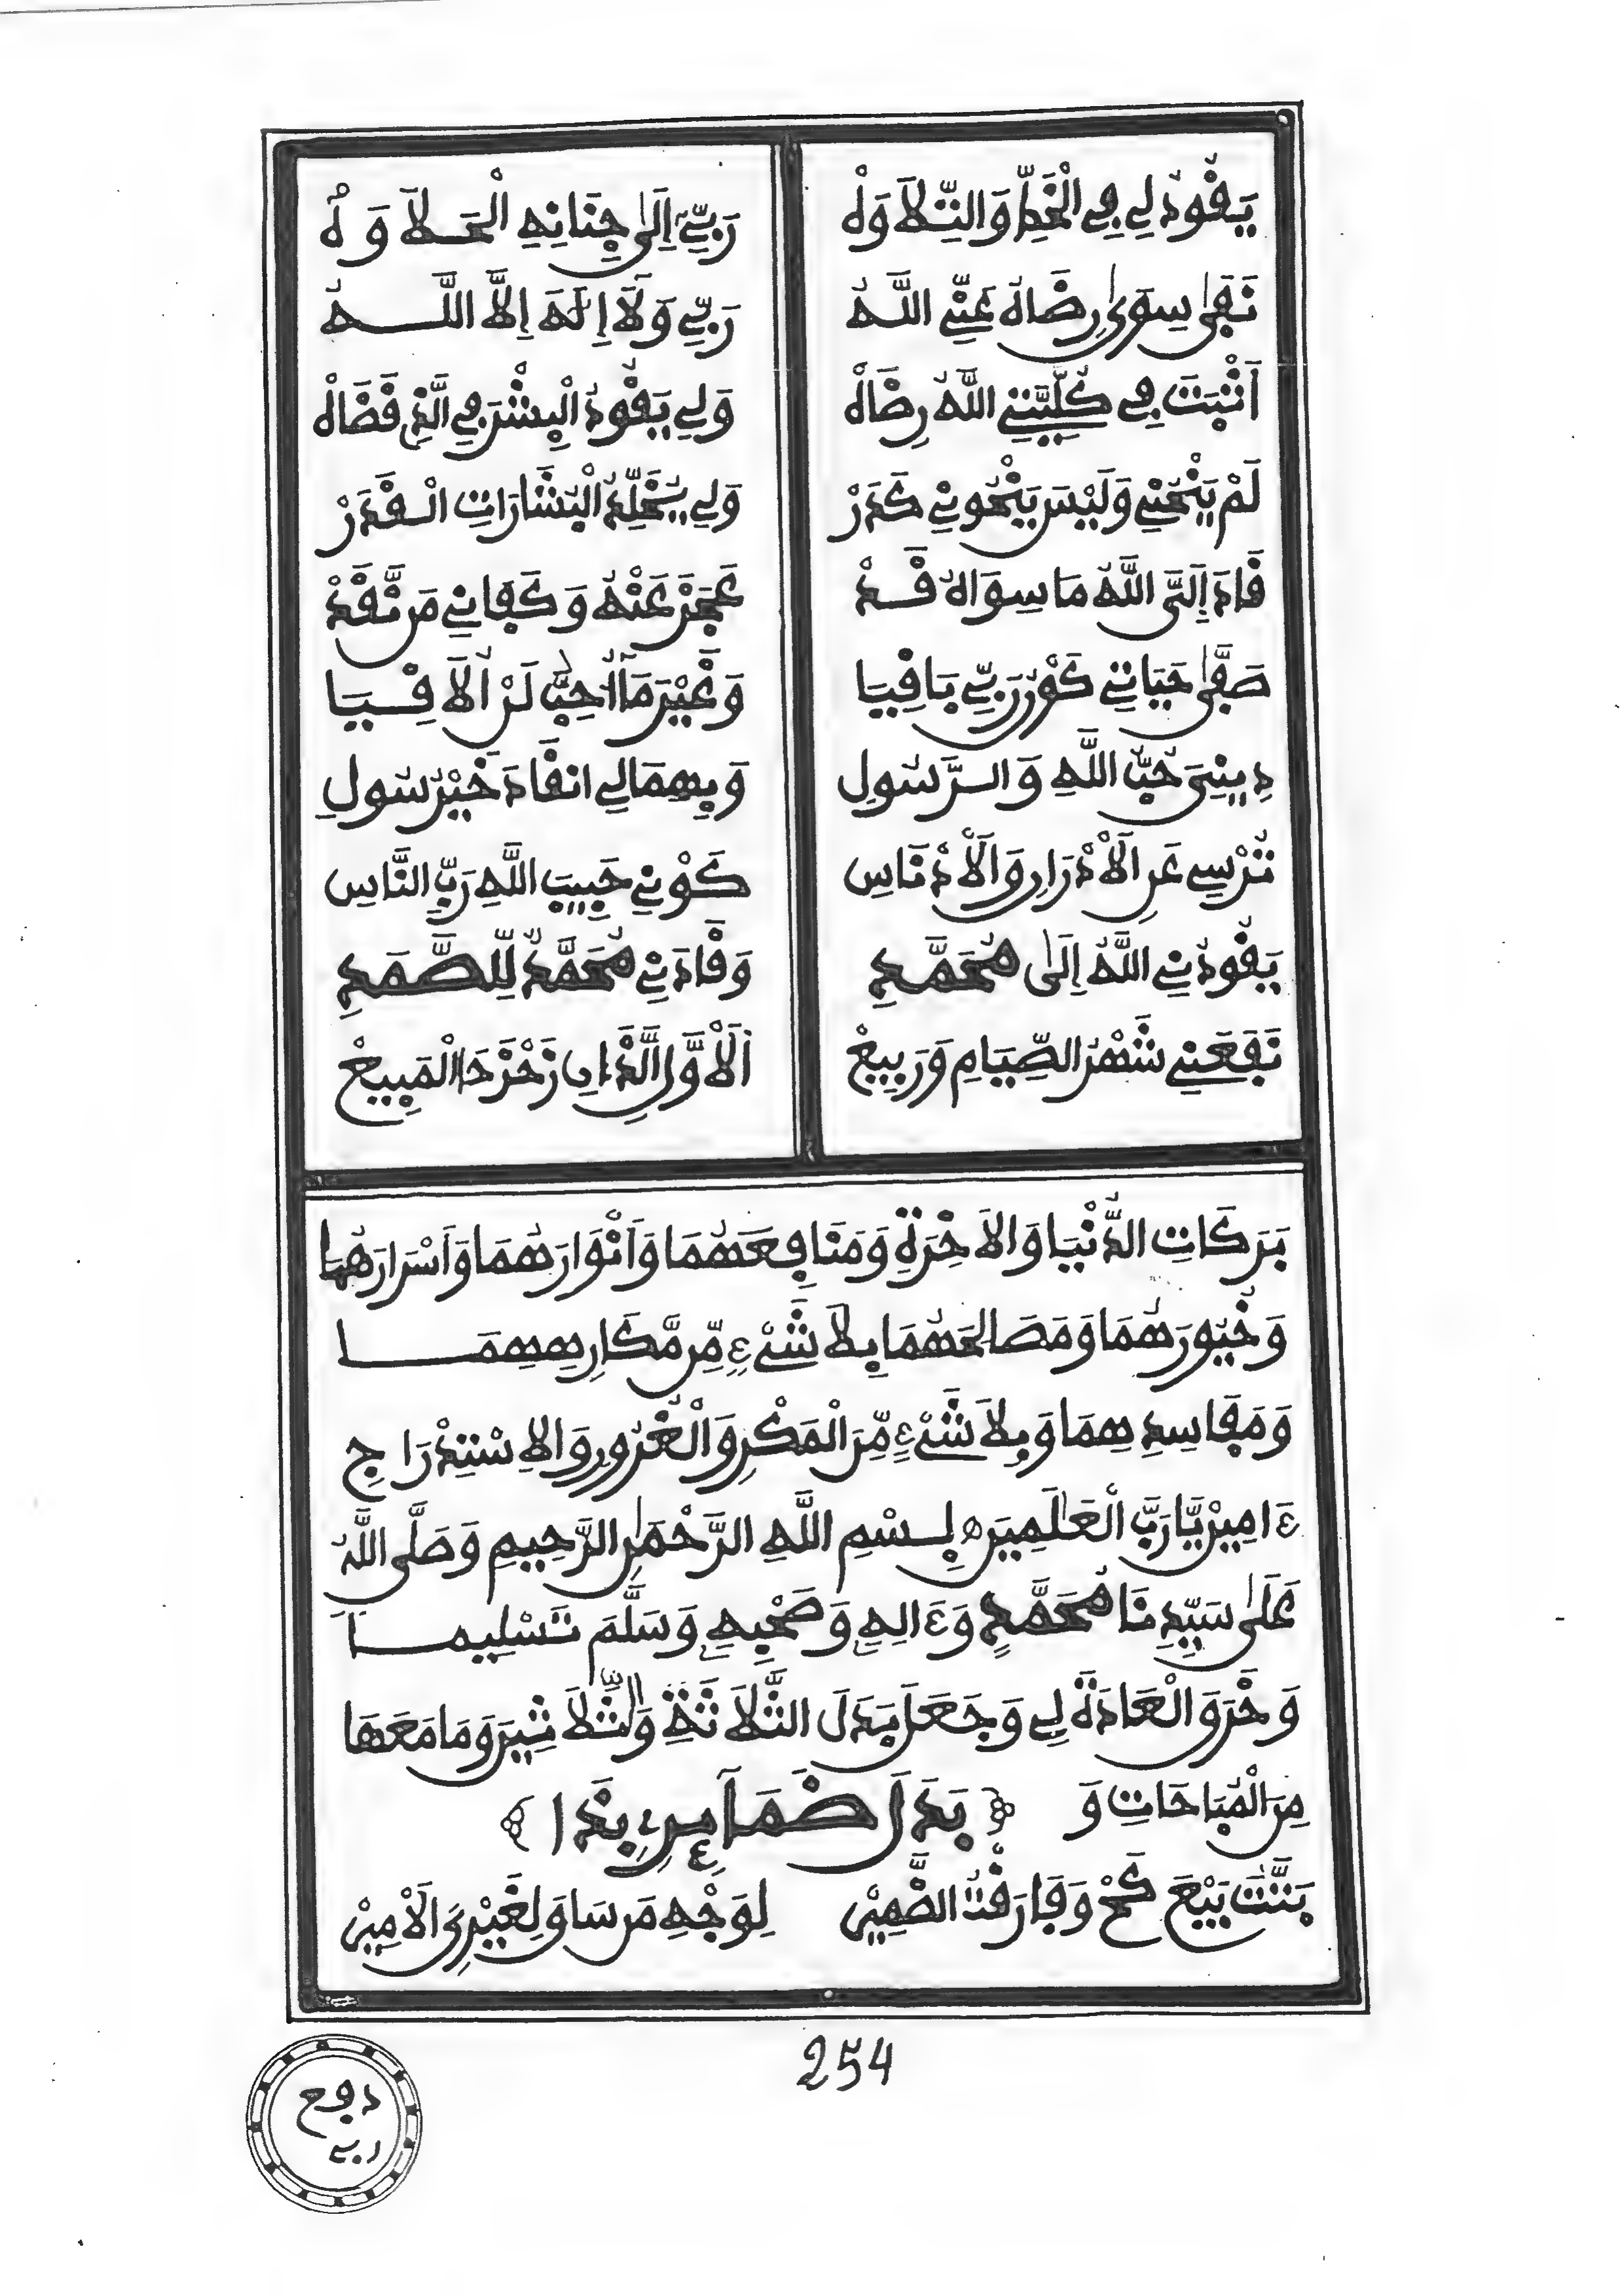 يَقُودُ لِي فِي الْخَطِّ وَالتِّلَاوَهْ رَبِّي إِلَى جِنَانِهِ الْحَلَاوَهْ
نَفَى سِوَى رِضَاهُ عَنِّي اللَّهُ رَبِّي وَلَا إِلَهَ إِلَّا اللَّهُ
أَثْبَتَ فِي كُلِّيَّتِي اللَّهُ رِضَاهْ وَلِي يَقُودُ الْبِشْرَ فِي الَّذِي قَضَاهْ
لَمْ يَنْحُنِي وَلَيْسَ يَنْحُونِي كَدَرْ وَلِي يُخَلِّدُ الْبِشَارَاتِ الْقَدَرْ
قَادَ إِلَيَّ اللَّهُ مَا سِوَاهُ قَدْ عَجَزَ عَنْهُ وَكَفَانِي مَن رَّقَدْ
صَفَّى حَيَاتِي كَوْنُ رَبِّي بَاقِيَا وَغَيْرَ مَا أُحِبُّ لَنْ أُلَاقِيَا
دِينِيَ حُبُّ اللَّهِ وَالرَّسُولِ وَبِهِمَا لِي انْقَادَ خَيْرُ سُولِ
تُرْسِي عَنِ الْأَدْرَارِ وَالْأَدْنَاسِ كَوْنِي حَبِيبَ اللَّهِ رَبِّ النَّاسِ
يَقُودُنِي اللَّهُ إِلَى مُحَمَّدِ وَقَادَنِي مُحَمَّدٌ لِلصَّمَدِ
نَفَعَنِي شَهْرُ الصِّيَامِ وَرَبِيعْ الْأَوَّلُ الَّذَانِ زَحْزَحَا الْمَبِيعْ
بَرَكَاتِ الدُّنْيَا وَالْآخِرَةِ وَمَنَافِعَهُمَا وَأَنْوَارَهُمَا وَأَسْرَارَهُمَا
وَخُيُورَهُمَا وَمَصَالِحَهُمَا بِلَا شَيْءٍ مِّن مَّكَارِهِهِمَا
وَمَفَاسِدِهِمَا وَبِلَا شَيْءٍ مِّنَ الْمَكْرِ وَالْغُرُورِ وَالِاسْتِدْرَاجِ
ءَامِين يَّا رَبَّ الْعَالَمِينَ ه بِسْمِ اللَّهِ الرَّحْمَنِ الرَّحِيمِ وَصَلَّى اللَّهُ
عَلَى سَيِّدِنَا مُحَمَّدٍ وَءَالِهِ وَصَحْبِهِ وَسَلَّمَ تَسْلِيمَا
وَخَرَقَ الْعَادَةَ لِي وَجَعَلَ بَدَلَ الثَّلَاثَةِ وَالثَّلَاثِينَ وَمَا مَعَهَا
مِنَ الْمُبَاحَاتِ وَ ﴿ بَدَلَ ضَمَآئِرِ بِنَدَا ﴾
بَتَّتُّ بَيْعَ كَحْ وَفَارَقْتُ الضَّمِيْن لِوَجْهِ مَن سَاقَ لِغَيْرِيَ الْأَمِيْن
254
دوح
ربي